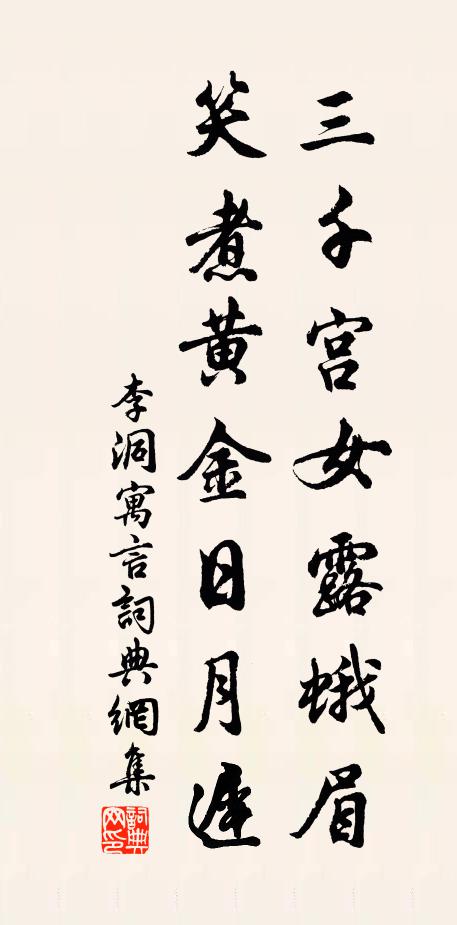 三千宫女露蛾眉
笑煮黄金日月遲
李洞寓言詞典網集
詞典
网印